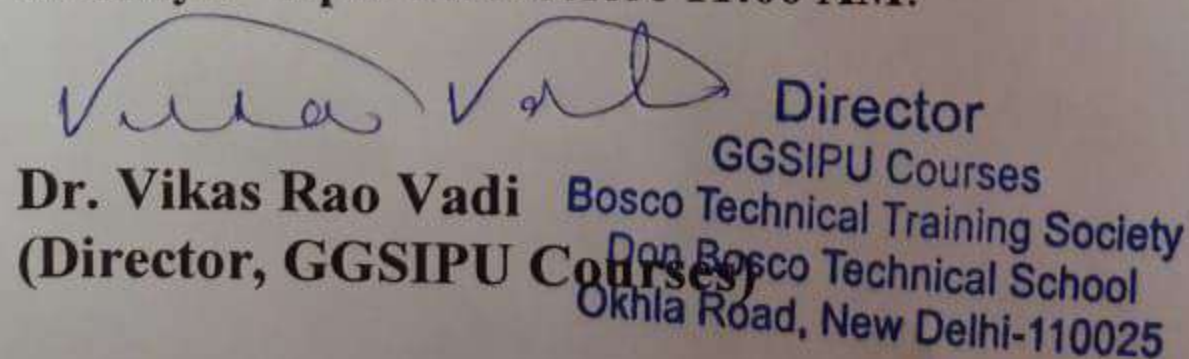 11:00 AM.
Dr. Vikas Rao Vadi
(Director, GGSIPU Courses)
Director
GGSIPU Courses
Bosco Technical Training Society
Don Bosco Technical School
Okhla Road, New Delhi-110025